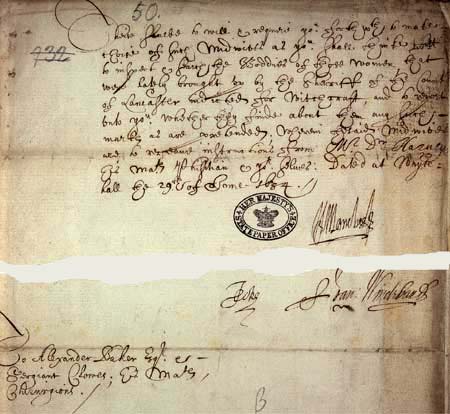 50.
732
These shalbe to will & require yor forthwith to make
choice of such Midwives as you shall thinke fitt
to inspect & search the Boddies of those women that
were lately brought up by the Sheriff of the County
of Lancaster indicted for Witchcraft, and to report
unto you whether they finde about them any such
markes as are pretended, wherein the said Midwives
are to receive instructions from Mr. Dr. Harvey
his Mats Phisitian & yor selves: Dated at White
hall the 29th of June 1634.
HER MAJESTY'S STATE PAPER OFFICE
H Manchester
Fran: Windebank
To Alexander Baker Esqr &
Sergiant Clowes, his Mats
Chirurgions.
B